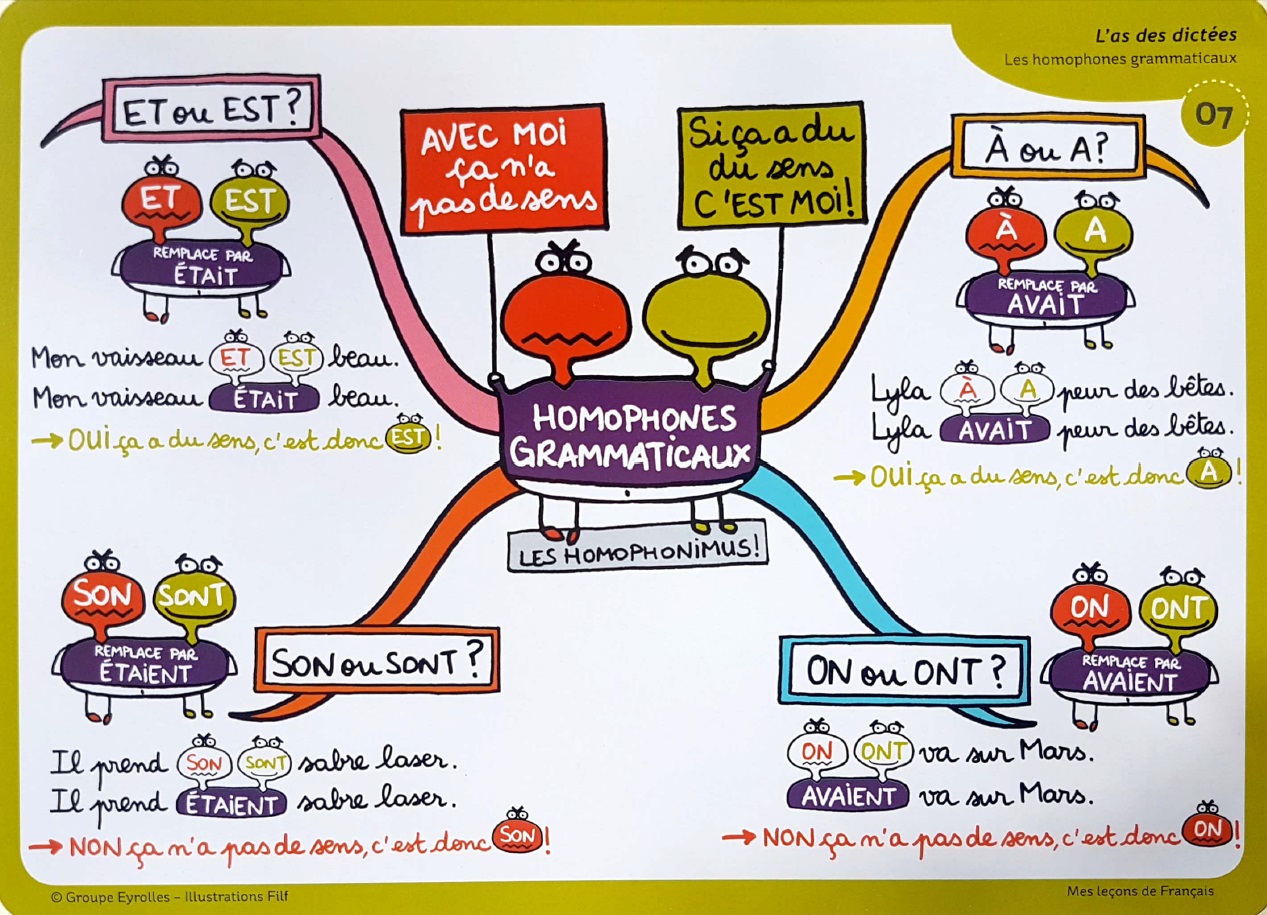 L'as des dictées
Les homophones grammaticaux
07
ET ou EST ?
ET EST
REMPLACE PAR
ÉTAIT
Mon vaisseau ET EST beau.
Mon vaisseau ÉTAIT beau.
→ OUI ça a du sens, c'est donc EST !
AVEC MOI
ça n'a
pas de sens
Si ça a du
du sens
C'EST MOI !
HOMOPHONES
GRAMMATICAUX
LES HOMOPHONIMUS !
À ou A ?
À A
REMPLACE PAR
AVAIT
Lyla À A peur des bêtes.
Lyla AVAIT peur des bêtes.
→ OUI ça a du sens, c'est donc A !
SON SONT
REMPLACE PAR
ÉTAIENT
SON ou SONT ?
Il prend SON SONT sabre laser.
Il prend ÉTAIENT sabre laser.
→ NON ça n'a pas de sens, c'est donc SON !
ON ou ONT ?
ON ONT
REMPLACE PAR
AVAIENT
ON ONT va sur Mars.
AVAIENT va sur Mars.
→ NON ça n'a pas de sens, c'est donc ON !
© Groupe Eyrolles – Illustrations Filf
Mes leçons de Français